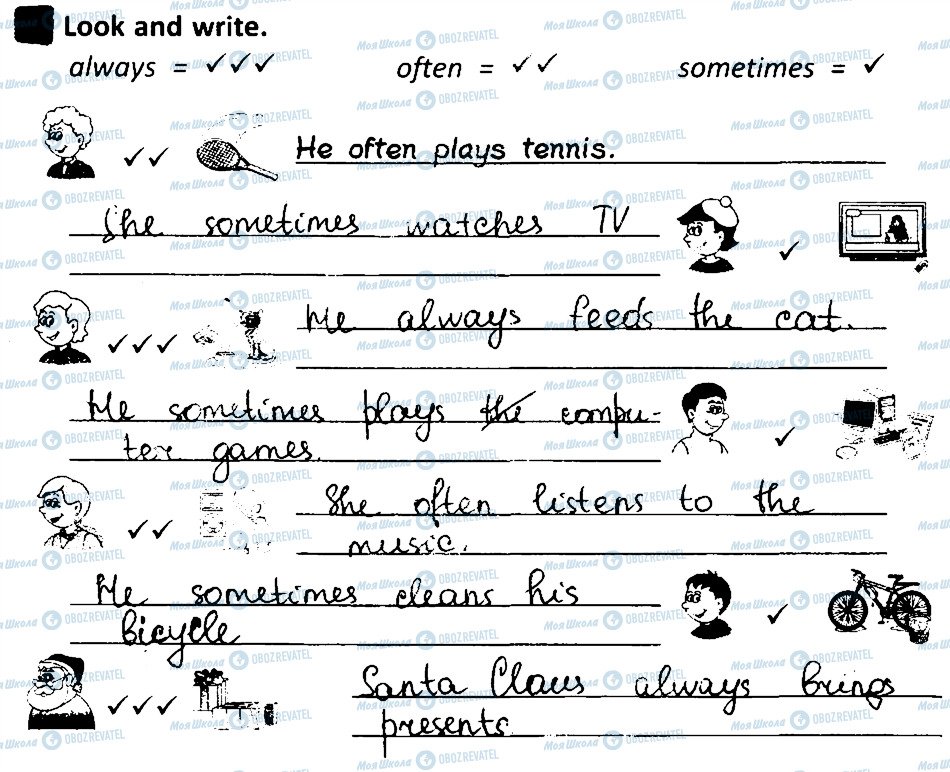 Look and write.
always = ✓✓✓ often = ✓✓ sometimes = ✓
He often plays tennis.
She sometimes watches TV
He always feeds the cat.
He sometimes plays the compu-
ter games.
She often listens to the
music.
He sometimes cleans his
bicycle
Santa Claus always brings
presents.
Моя Школа OBOZREVATEL